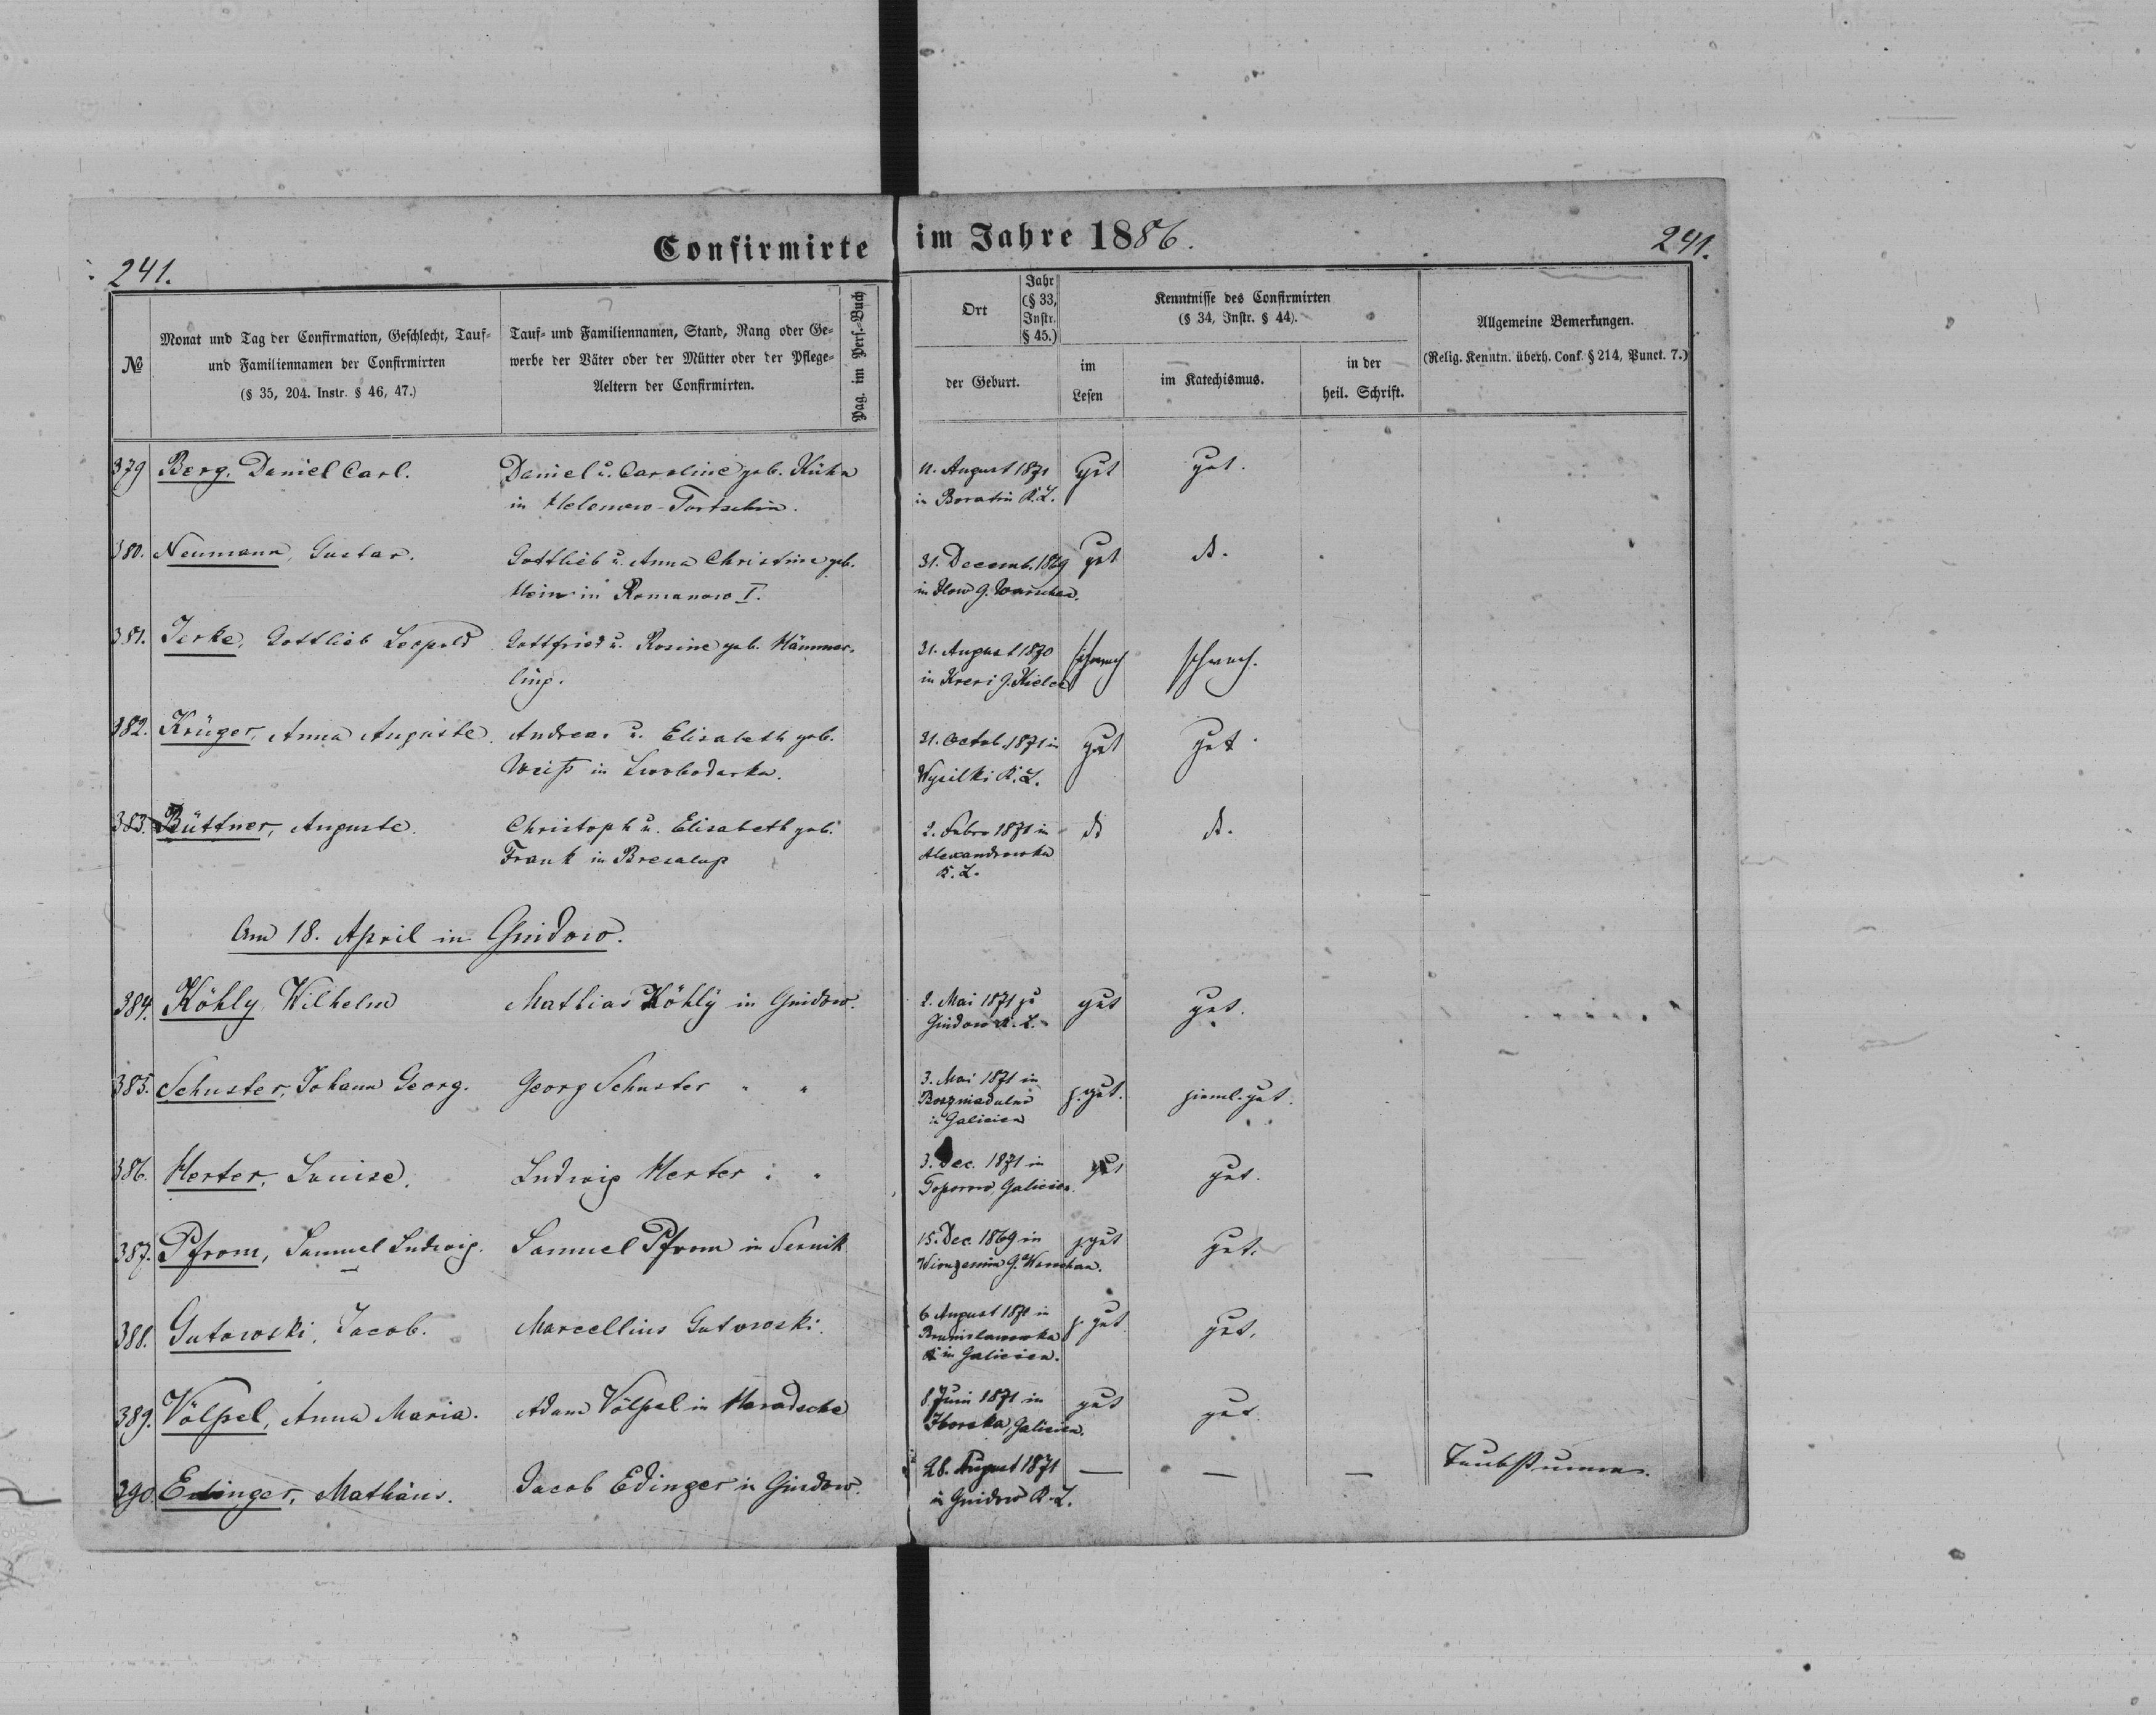 Confirmirte im Jahre 1886.
241.
241.
№
Monat und Tag der Confirmation, Geschlecht, Tauf-
und Familiennamen der Confirmirten
(§ 35, 204. Instr. § 46, 47.)
Tauf- und Familiennamen, Stand, Rang oder Ge-
werbe der Väter oder der Mütter oder der Pflege-
Aeltern der Confirmirten.
Pag. im Pers.-Buch
Ort
Jahr
(§ 33,
Instr.
§ 45.)
der Geburt.
Kenntnisse des Confirmirten
(§ 34, Instr. § 44).
im
Lesen
im Katechismus.
in der
heil. Schrift.
Allgemeine Bemerkungen.
(Relig. Kenntn. überh. Conf. § 214, Punct. 7.)
379 Berg, Daniel Carl. Daniel u. Caroline geb. Kühn 11. August 1871 gut gut.
in Helenow-Tortschin. in Boratin K. L.
380. Neumann, Gustav. Gottlieb u. Anna Christine geb. 31. Decemb. 1869 gut dt.
Hein in Romanow I. in Ilow G. Warschau.
381. Jerke, Gottlieb Leopold Gottfried u. Rosine geb. Hämmer- 31. August 1870 schwach schwach.
ling. in G. Kielce
382. Krüger, Anna Auguste. Andreas u. Elisabeth geb. 31. Octob. 1871 in gut gut.
Weiß in Swobodarka. Wysilki K. L.
383. Büttner, Auguste. Christoph u. Elisabeth geb. 2. Febr 1871 in dt dt.
Frank in Alexandrowka
K. L.
Am 18. April in Gnidow.
384. Köhly Wilhelm Mathias Köhly in Gnidow. 2. Mai 1871 zu gut gut.
Gnidow K. L.
385. Schuster, Johann Georg. Georg Schuster " " 3. Mai 1871 in z. gut. zieml. gut.
in Galicien
386. Herter, Louise. Ludwig Herter " " 3. Dec. 1871 in gut gut.
Toporow, Galicien.
387. Pfrom, Samuel Ludwig. Samuel Pfrom in Sernik 15. Dec. 1869 in z. gut gut.
G. Warschau.
388. Gutowski, Jacob. Marcellius Gutowski. 6 August 1871 in z. gut gut.
Bronislawowka
in Galicien.
389. Völpel, Anna Maria. Adam Völpel in Haradsche 8. Juni 1871 in gut gut.
Galicien.
390. Edinger, Mathäus. Jacob Edinger in Gnidow. 28. August 1871 — — — Taubstumm.
in Gnidow K. L.